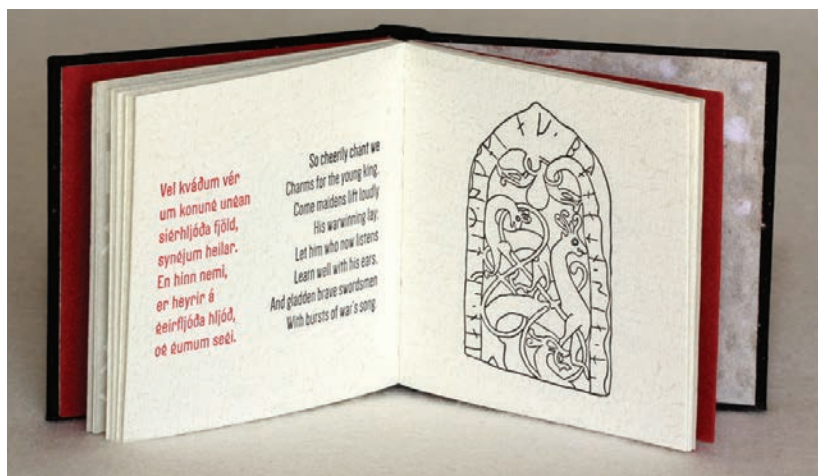 Vel kváðum vér
um konung ungan
sigrhljóða fjöld,
syngjum heilar.
En hinn nemi,
er heyrir á
geirfljóða hljóð,
og gumum segi.
So cheerily chant we
Charms for the young king.
Come maidens lift loudly
His warwinning lay;
Let him who now listens
Learn well with his ears.
And gladden brave swordsmen
With bursts of war's song.